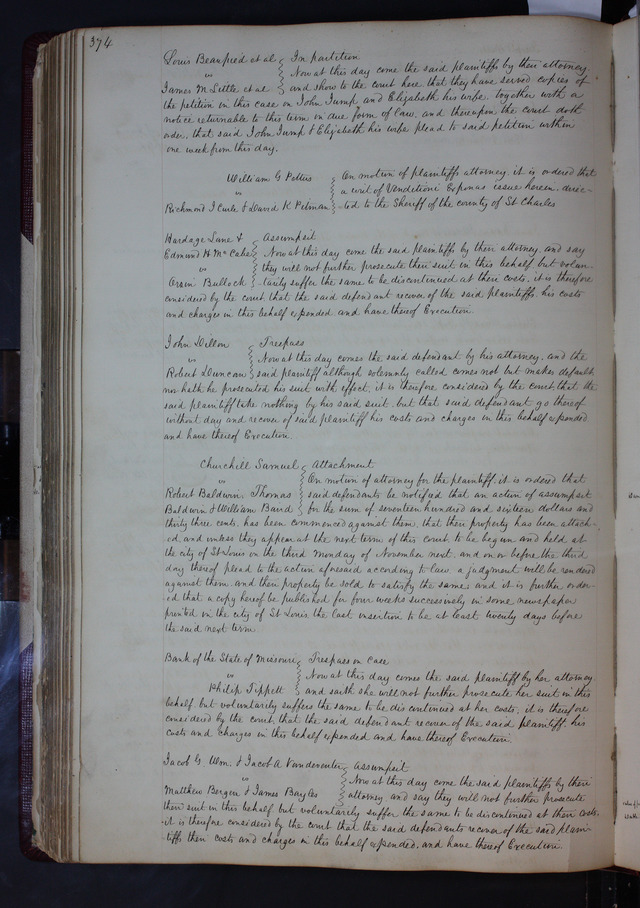 374
Louis Beaufied et al } In partition
vs } Now at this day come the said plaintiffs by their attorney
James M Little et al } and show to the court here that they have served copies of
the petition in this case on John Jump and Elizabeth his wife together with a
notice returnable to this term in due form of law, and thereupon the court doth
order, that said John Jump & Elizabeth his wife plead to said petition within
one week from this day.
William G Pettus } On motion of plaintiffs attorney it is ordered that
vs } a writ of Venditioni Exponas issue herein, direc-
Richmond J Curle & David K Pitman } ted to the Sheriff of the county of St Charles
Hardage Lane & } Assumpsit
Edmund H McCabe } Now at this day come the said plaintiffs by their attorney and say
vs } they will not further prosecute their suit in this behalf, but volun-
Orsin Bullock } tarily suffer the same to be discontinued at their costs, it is therefore
considered by the court that the said defendant recover of the said plaintiffs, his costs
and charges in this behalf expended and have thereof Execution.
John Dillon } Trespass
vs } Now at this day comes the said defendant by his attorney, and the
Robert Duncan } said plaintiff although solemnly called comes not but makes default
nor hath he prosecuted his suit with effect, it is therefore considered by the court that the
said plaintiff take nothing by his said suit, but that said defendant go thereof
without day and recover of said plaintiff his costs and charges in this behalf expended
and have thereof Execution
Churchill Samuel } Attachment
vs } On motion of attorney for the plaintiff it is ordered that
Robert Baldwin, Thomas } said defendants be notified that an action of assumpsit
Baldwin & William Baird } for the sum of seventeen hundred and sixteen dollars and
thirty three cents, has been commenced against them, that their property has been attach-
ed, and unless they appear at the next term of this court to be begun and held at
the city of St Louis on the third Monday of November next, and on or before the third
day thereof plead to the action aforesaid according to law a judgment will be rendered
against them, and their property be sold to satisfy the same, and it is further order-
ed that a copy hereof be published for four weeks successively in some newspaper
printed in the city of St Louis the last insertion to be at least twenty days before
the said next term.
Bank of the State of Missouri } Trespass on Case
vs } Now at this day comes the said plaintiff by her attorney
Philip Tippett } and saith she will not further prosecute her suit in this
behalf but voluntarily suffers the same to be discontinued at her costs, it is therefore
considered by the court, that the said defendant recover of the said plaintiff, his
costs and charges in this behalf expended and have thereof Execution.
Jacob G Ulm. & Jacob A Vanderventer } Assumpsit
vs } Now at this day come the said plaintiffs by their
Matthew Bergen & James Bayles } attorney and say they will not further prosecute
their suit in this behalf but voluntarily suffer the same to be discontinued at their costs.
it is therefore considered by the court that the said defendants recover of the said plain-
tiffs their costs and charges in this behalf expended, and have thereof Execution.